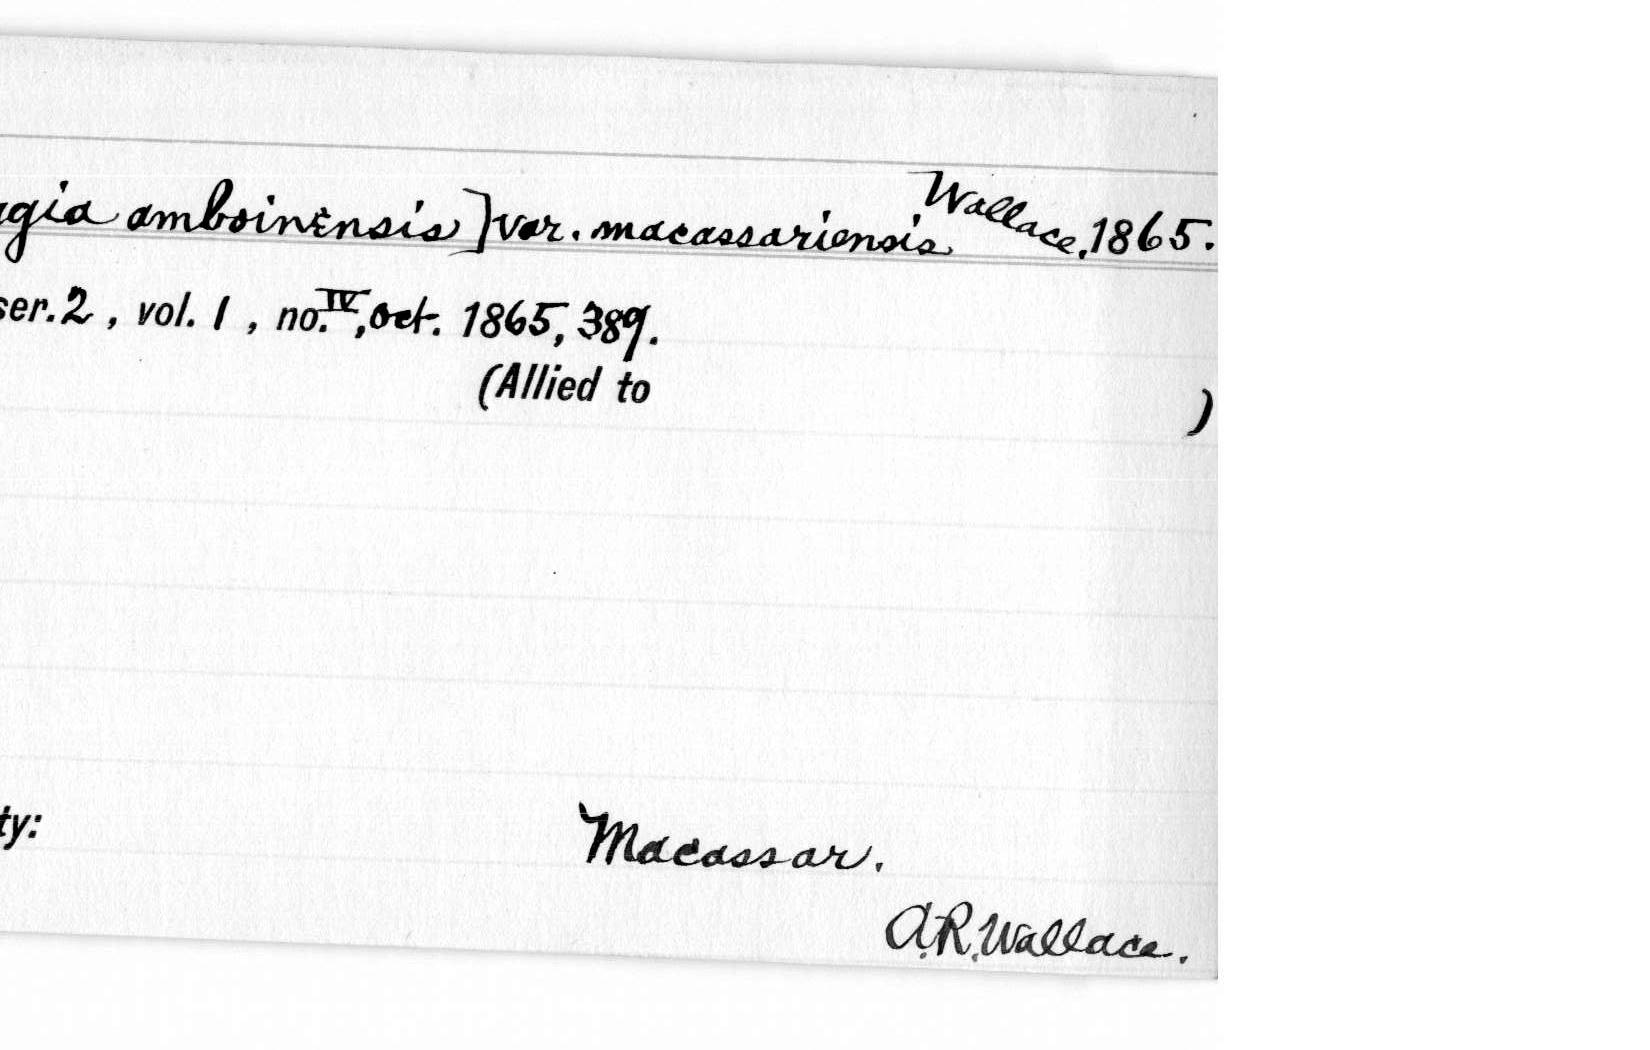 gia amboinensis] var. macassariensis Wallace, 1865.
ser. 2, vol. 1, no. IV, oct. 1865, 389.
(Allied to )
ty:
Macassar.
A.R. Wallace.